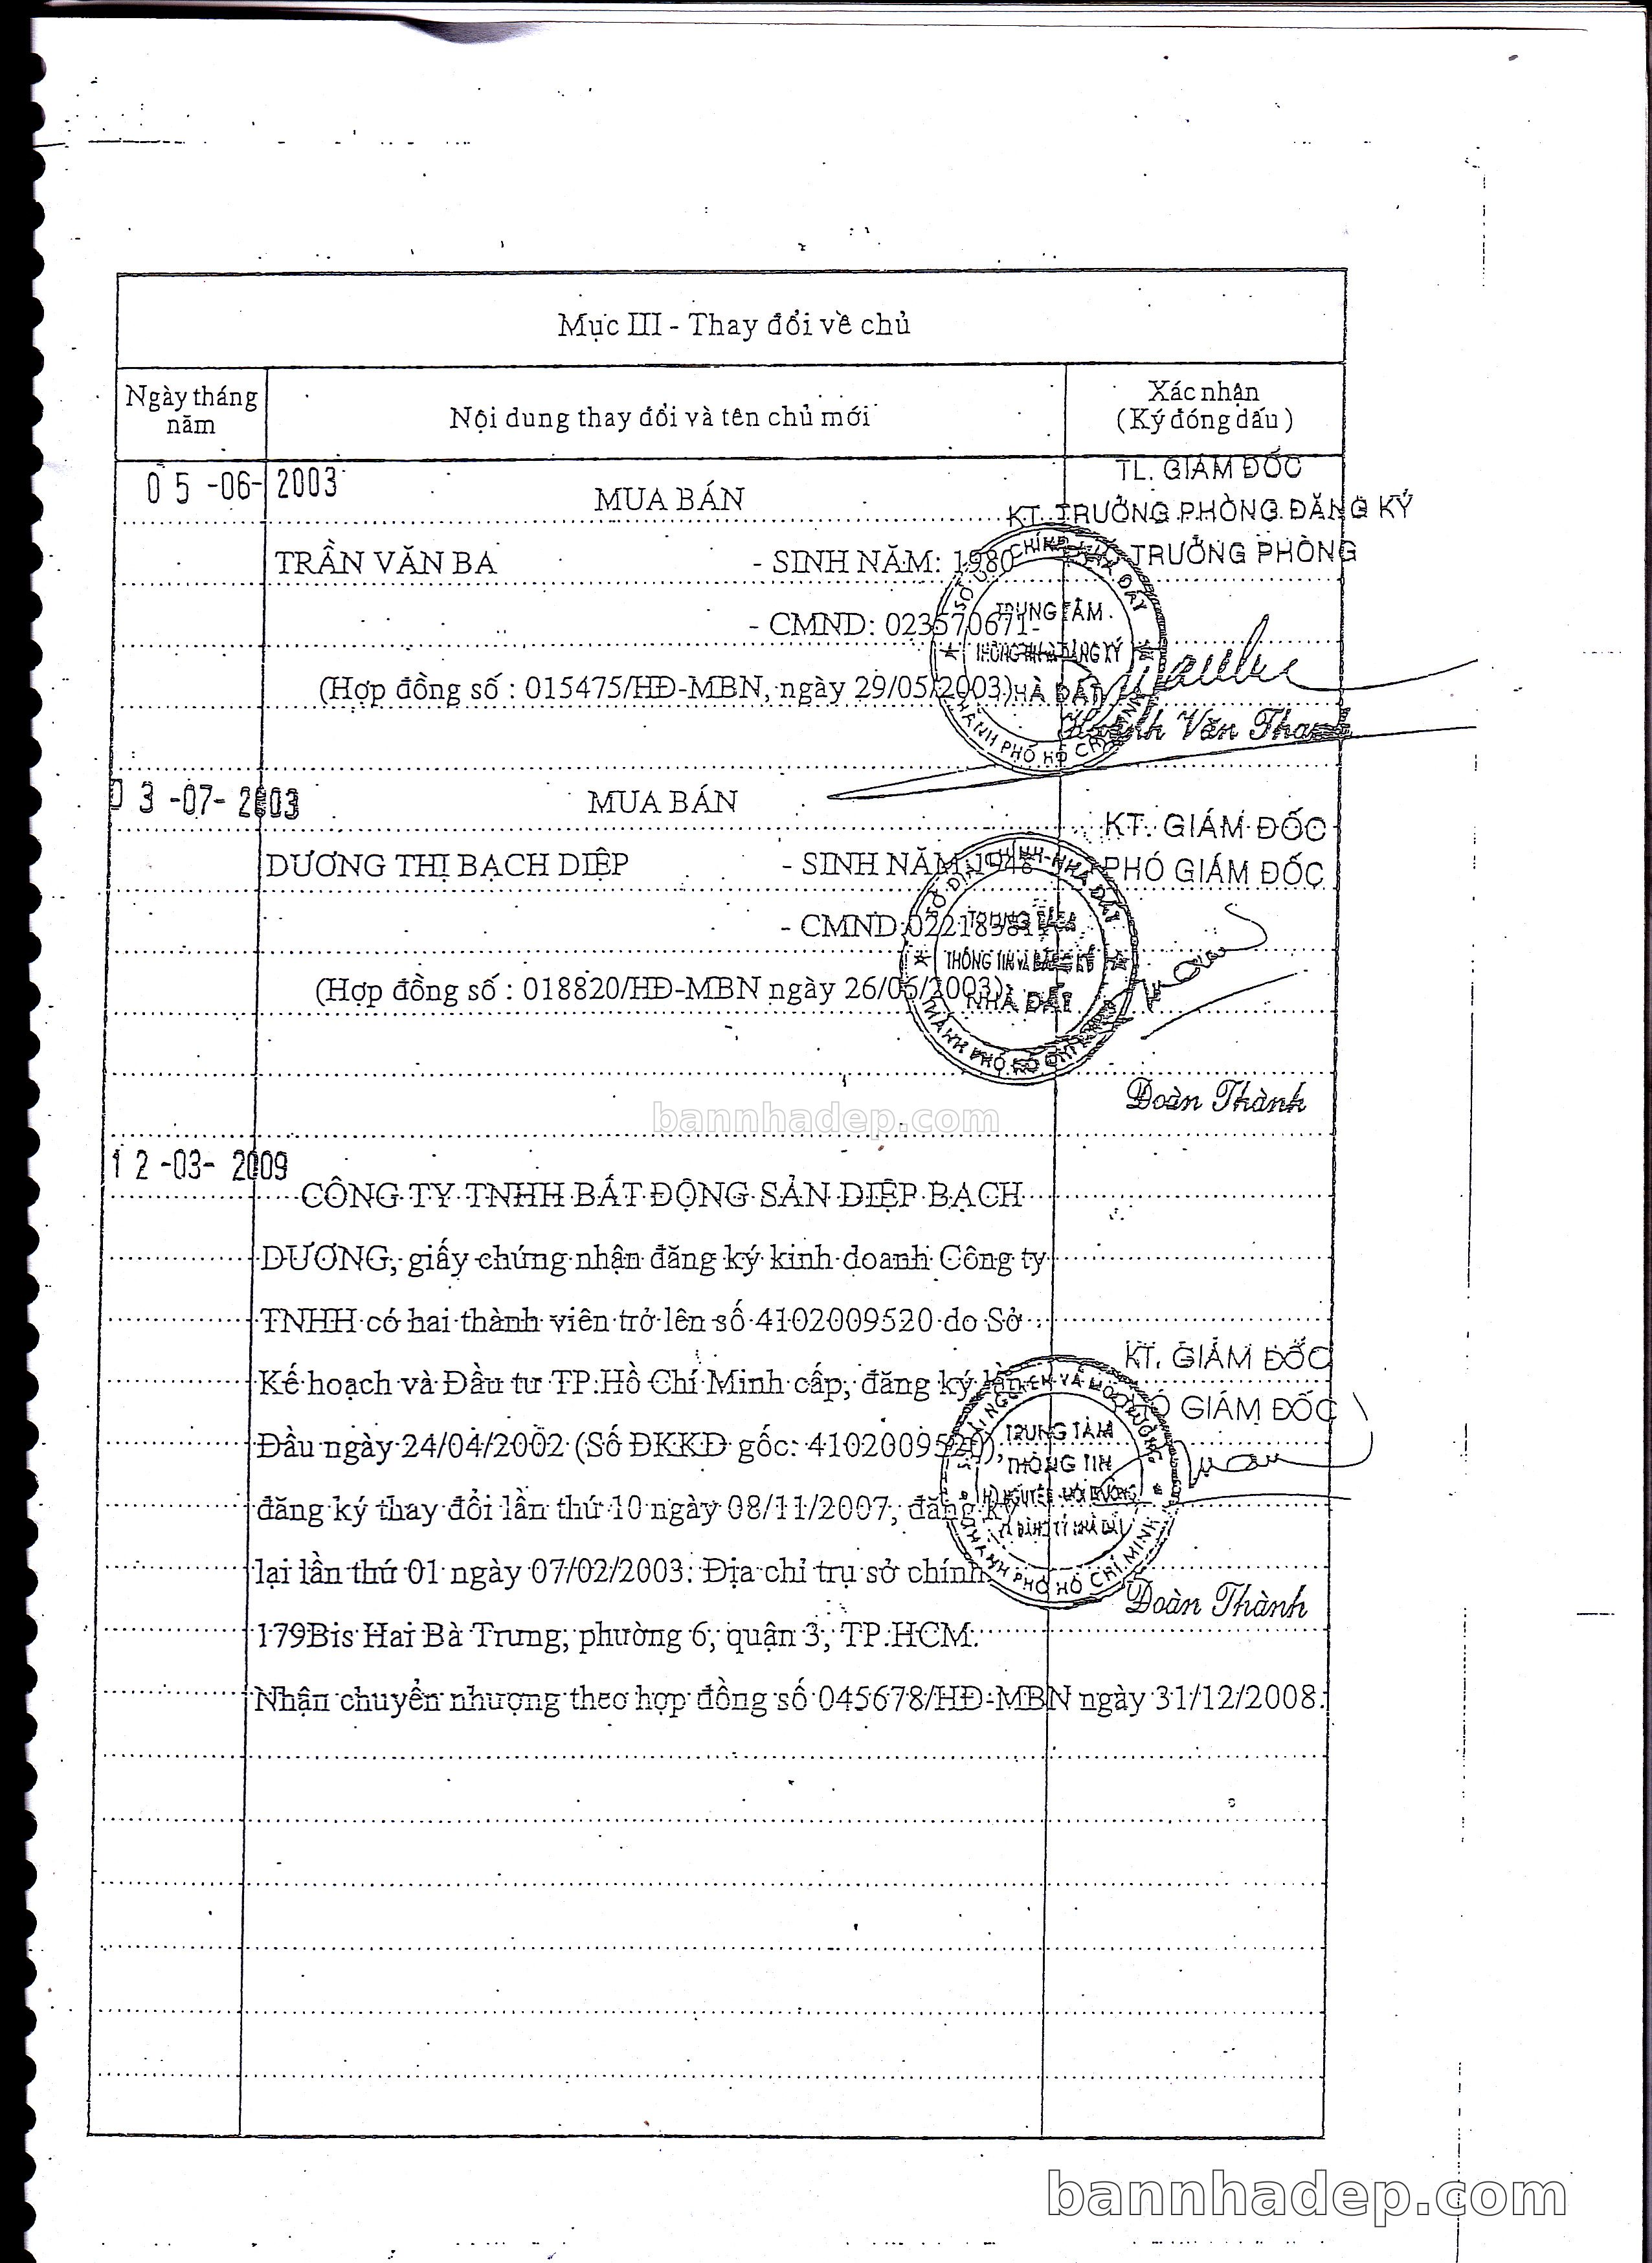 Mục III - Thay đổi về chủ
Ngày tháng năm
Nội dung thay đổi và tên chủ mới
Xác nhận
(Ký đóng dấu)
05-06-2003
MUA BÁN
TL. GIÁM ĐỐC
KT. TRƯỞNG PHÒNG ĐĂNG KÝ
TRƯỞNG PHÒNG
TRẦN VĂN BA - SINH NĂM: 1980
- CMND: 023570671-
(Hợp đồng số : 015475/HĐ-MBN, ngày 29/05/2003)
TRUNG TÂM
NHÀ ĐẤT
THÀNH PHỐ HỒ CHÍ MINH
Huỳnh Văn Thanh
03-07-2003
MUA BÁN
KT. GIÁM ĐỐC
PHÓ GIÁM ĐỐC
DƯƠNG THỊ BẠCH DIỆP - SINH NĂM: 1948
- CMND:
(Hợp đồng số : 018820/HĐ-MBN ngày 26/06/2003)
SỞ ĐỊA CHÍNH-NHÀ ĐẤT
TRUNG TÂM
THÔNG TIN VÀ ĐĂNG KÝ
NHÀ ĐẤT
Đoàn Thành
bannhadep.com
12-03-2009
CÔNG TY TNHH BẤT ĐỘNG SẢN DIỆP BẠCH
DƯƠNG, giấy chứng nhận đăng ký kinh doanh Công ty
TNHH có hai thành viên trở lên số 4102009520 do Sở
Kế hoạch và Đầu tư TP.Hồ Chí Minh cấp, đăng ký lần
Đầu ngày 24/04/2002 (Số ĐKKD gốc: 4102009520),
đăng ký thay đổi lần thứ 10 ngày 08/11/2007, đăng ký
lại lần thứ 01 ngày 07/02/2003. Địa chỉ trụ sở chính
179Bis Hai Bà Trưng, phường 6, quận 3, TP.HCM.
Nhận chuyển nhượng theo hợp đồng số 045678/HĐ-MBN ngày 31/12/2008.
KT. GIÁM ĐỐC
PHÓ GIÁM ĐỐC
TRUNG TÂM
THÔNG TIN
THÀNH PHỐ HỒ CHÍ MINH
Đoàn Thành
bannhadep.com